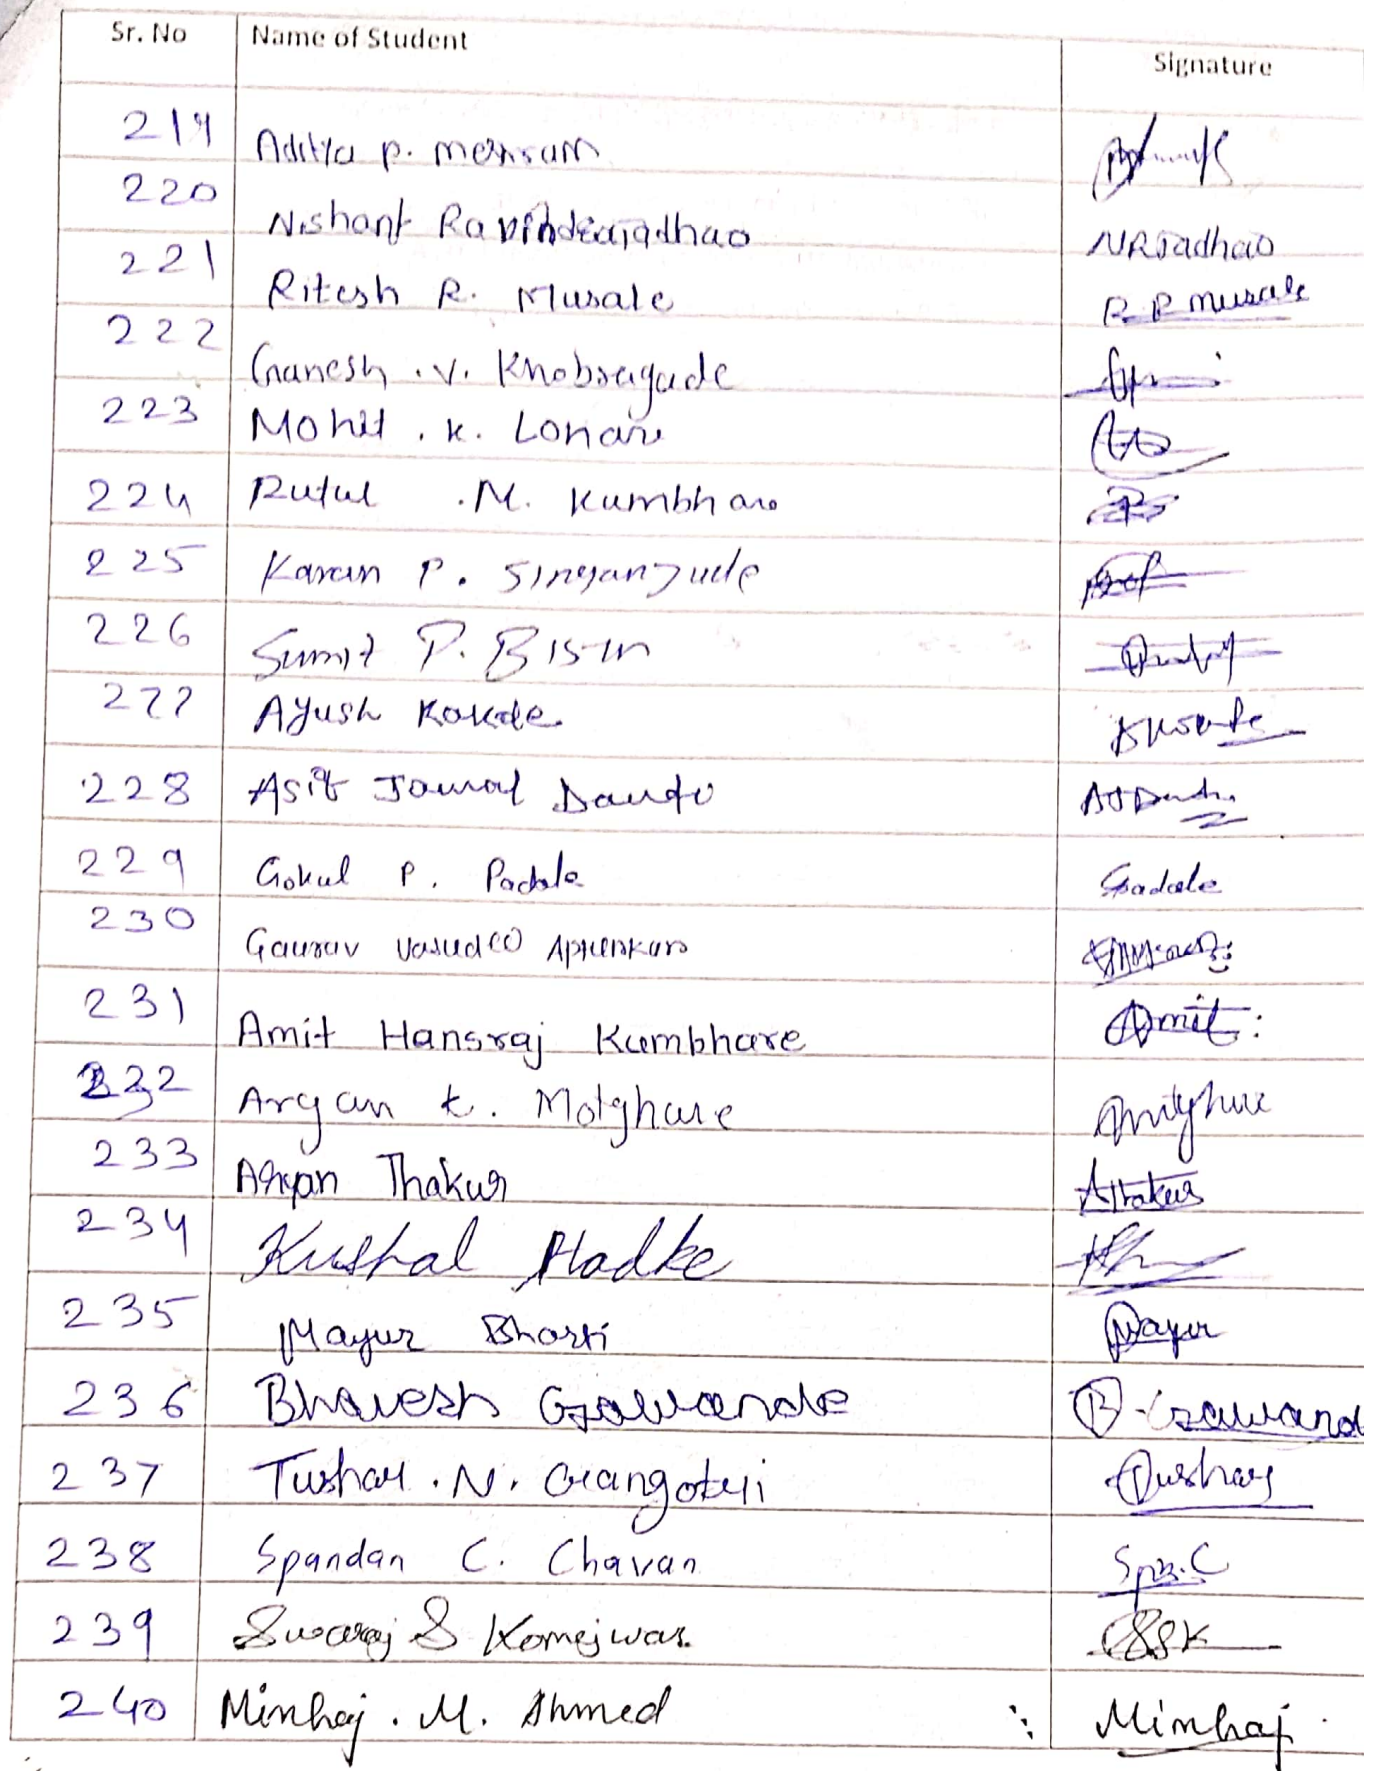 Sr. No Name of Student Signature
219 Aditya P. Meshram
220 Nishant Ravindra Jadhao NRJadhao
221 Ritesh R. Musale R. R Musale
222 Ganesh .V. Khobragade
223 Mohit . K. Lonare
224 Rutul .M. Kumbhare
225 Karan P.
226 Sumit P. Bisen
227 Ayush Kokate
228 Asif Jamal
229 Gokul P. Padole
230 Gaurav Vasudeo
231 Amit Hansraj Kumbhare Amit
232 Aryan K. Motghare
233 Aryan Thakur AThakur
234 Kushal Hadke
235 Mayur Bharti Mayur
236 Bhavesh Gawande B. Gawand
237 Tushar . N. Tushar
238 Spandan C. Chavan Spn.C
239 Swaraj S Komejwar SSK
240 Minhaj . M. Ahmed Minhaj